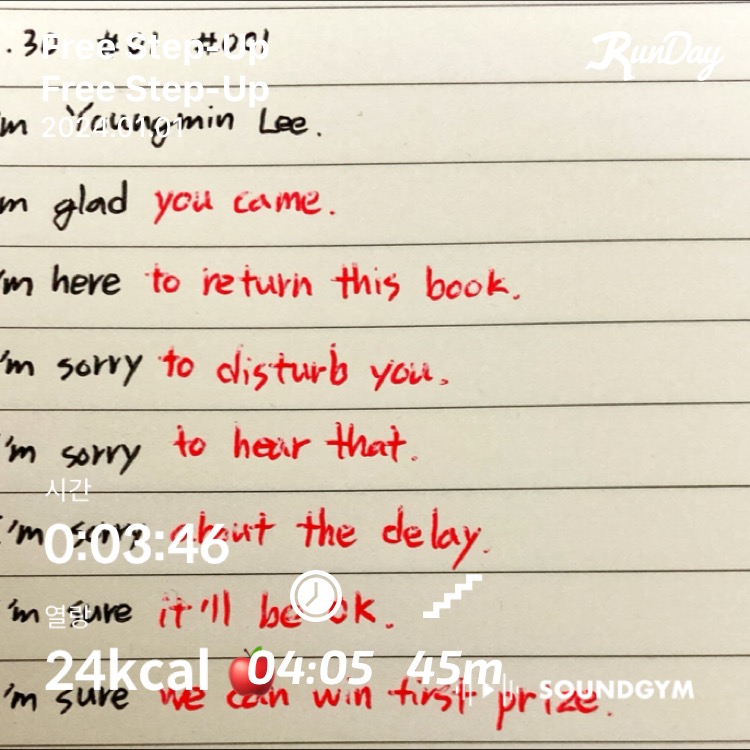 RunDay
Free Step-Up
Free Step-Up
2024.01.01
'm Youngmin Lee.
'm glad you came.
'm here to return this book.
'm sorry to disturb you.
'm sorry to hear that.
시간
I'm sorry about the delay.
0:03:46
'm sure it'll be ok.
열량
24kcal
04:05 45m
'm sure we can win first prize.
SOUNDGYM